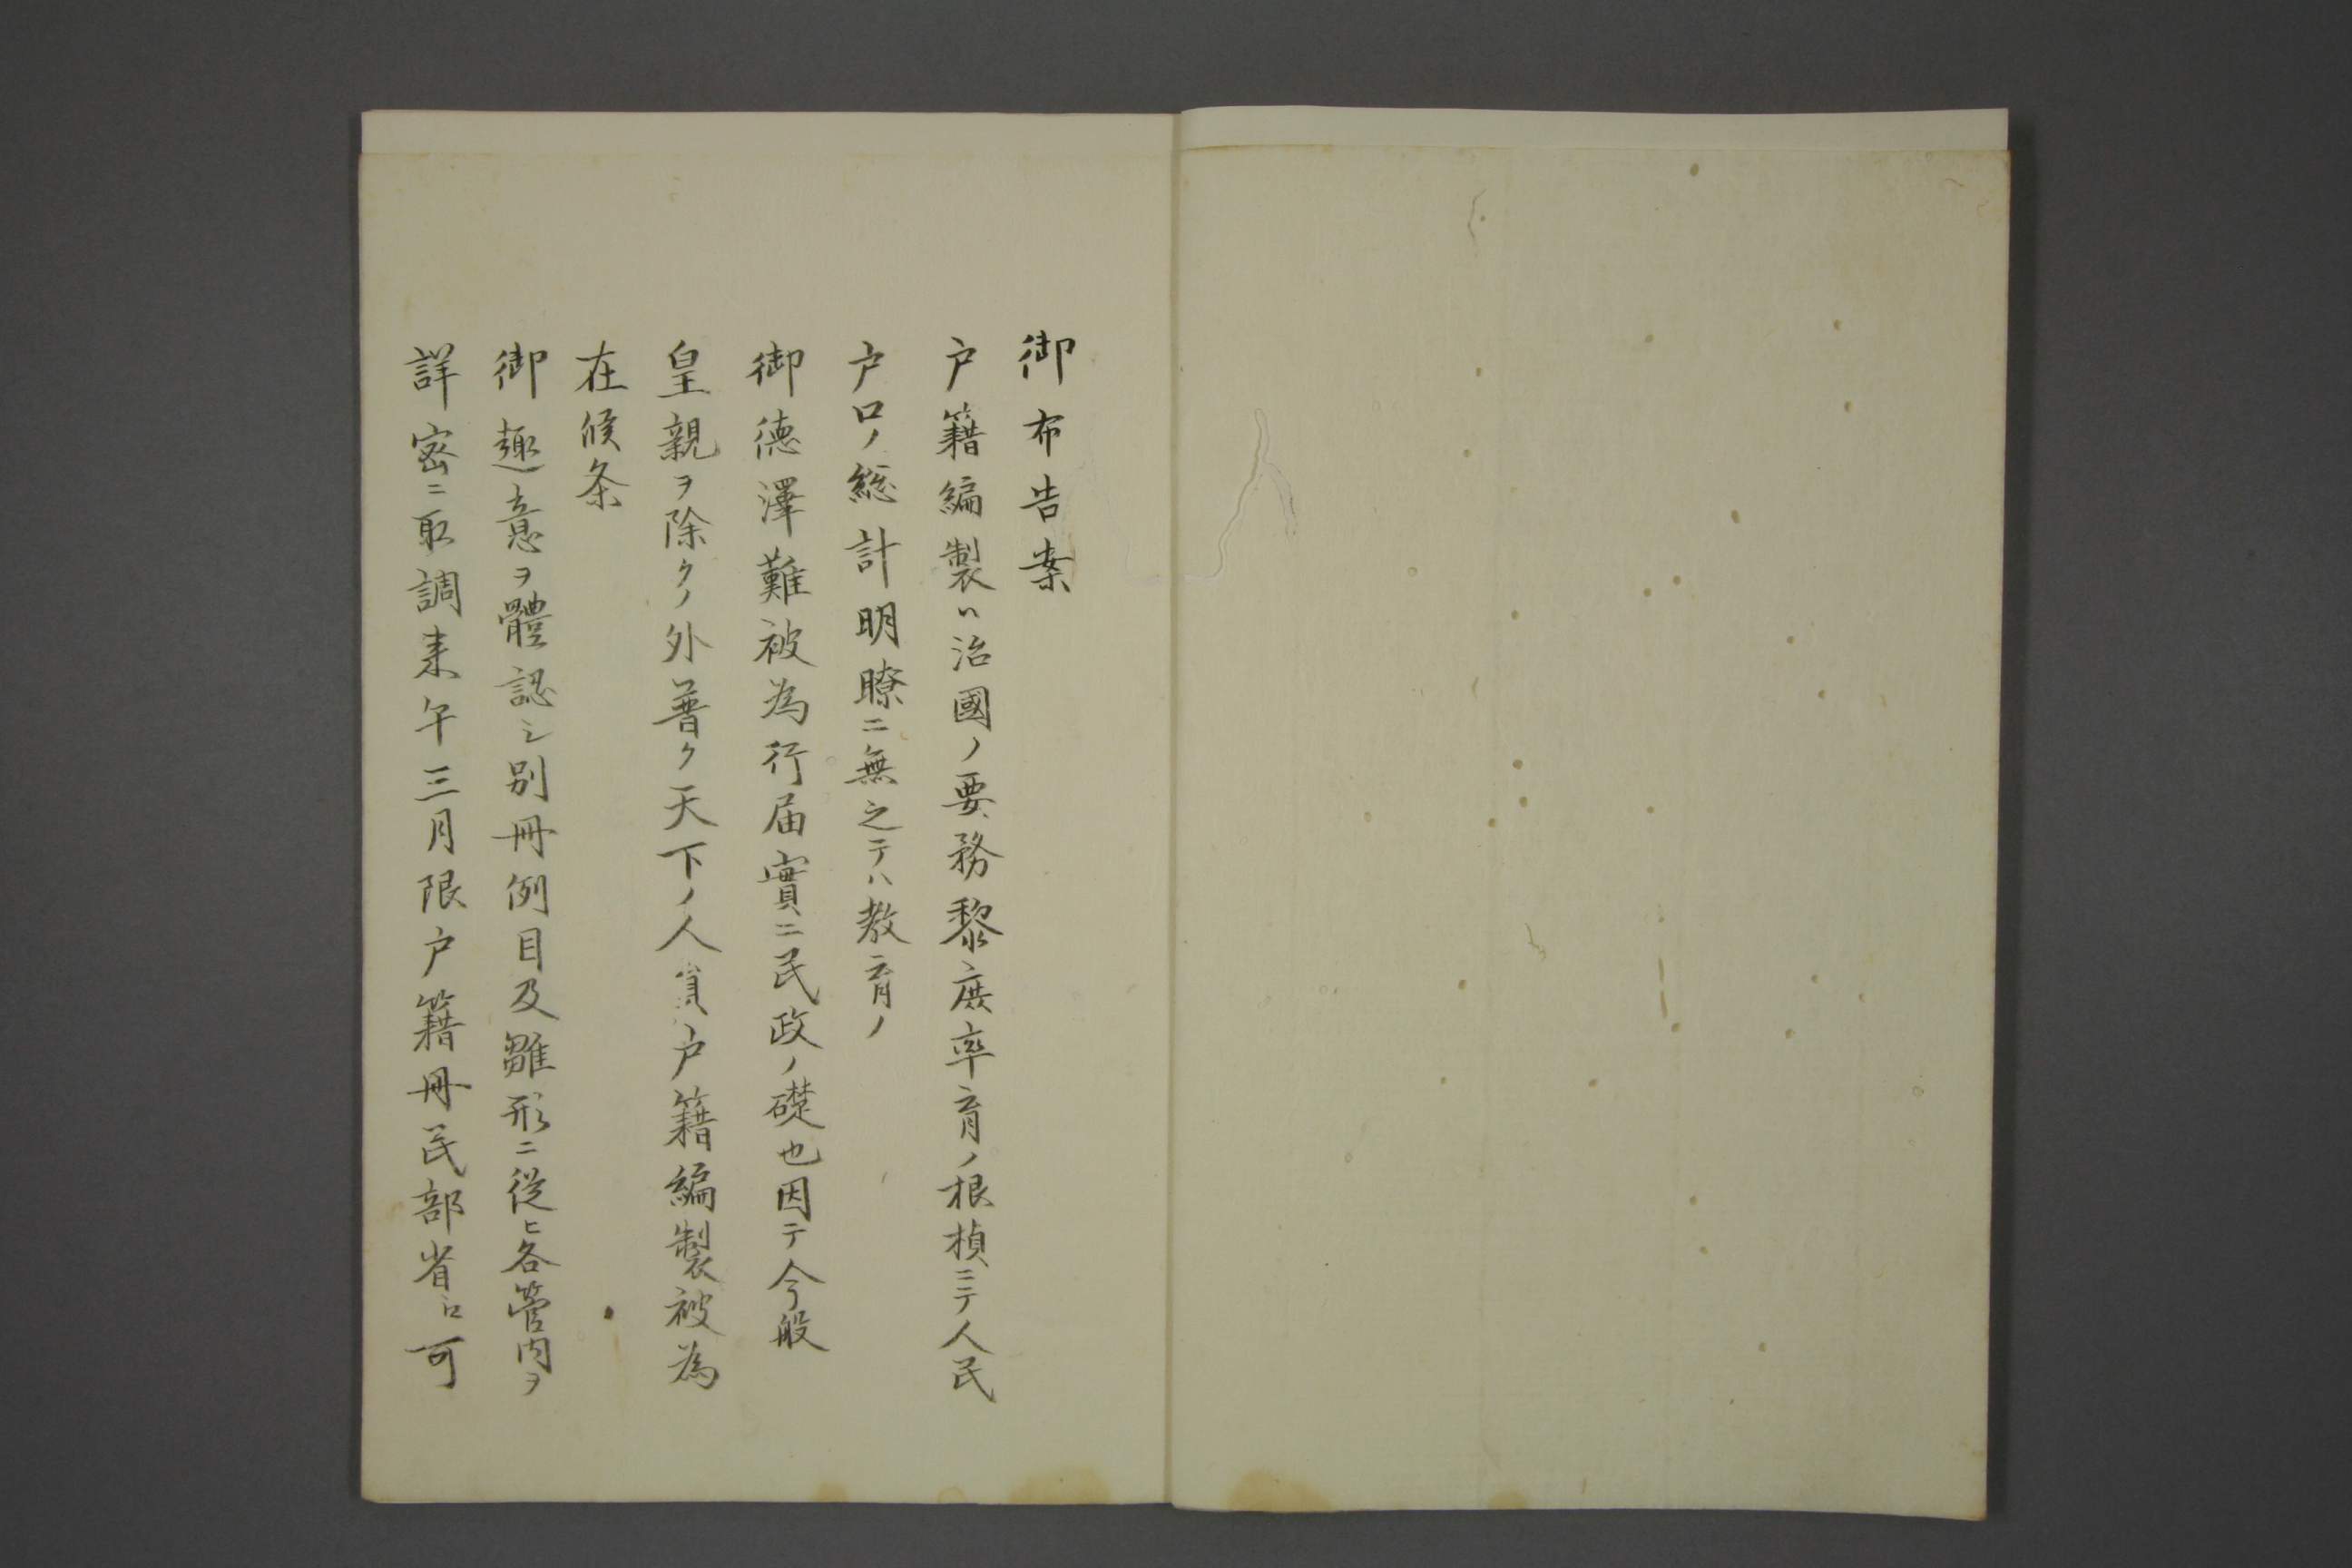 御布告案
戸籍編製ハ治國ノ要務黎庶率育ノ根楨ニテ人民
戸口ノ総計明瞭ニ無之テハ教育ノ
御徳澤難被為行届實ニ民政ノ礎也因テ今般
皇親ヲ除クノ外普ク天下ノ人員戸籍編製被為
在候条
御趣意ヲ體認シ別冊例目及雛形ニ従ヒ各管内ヲ
詳密ニ取調来午三月限戸籍冊民部省ヘ可